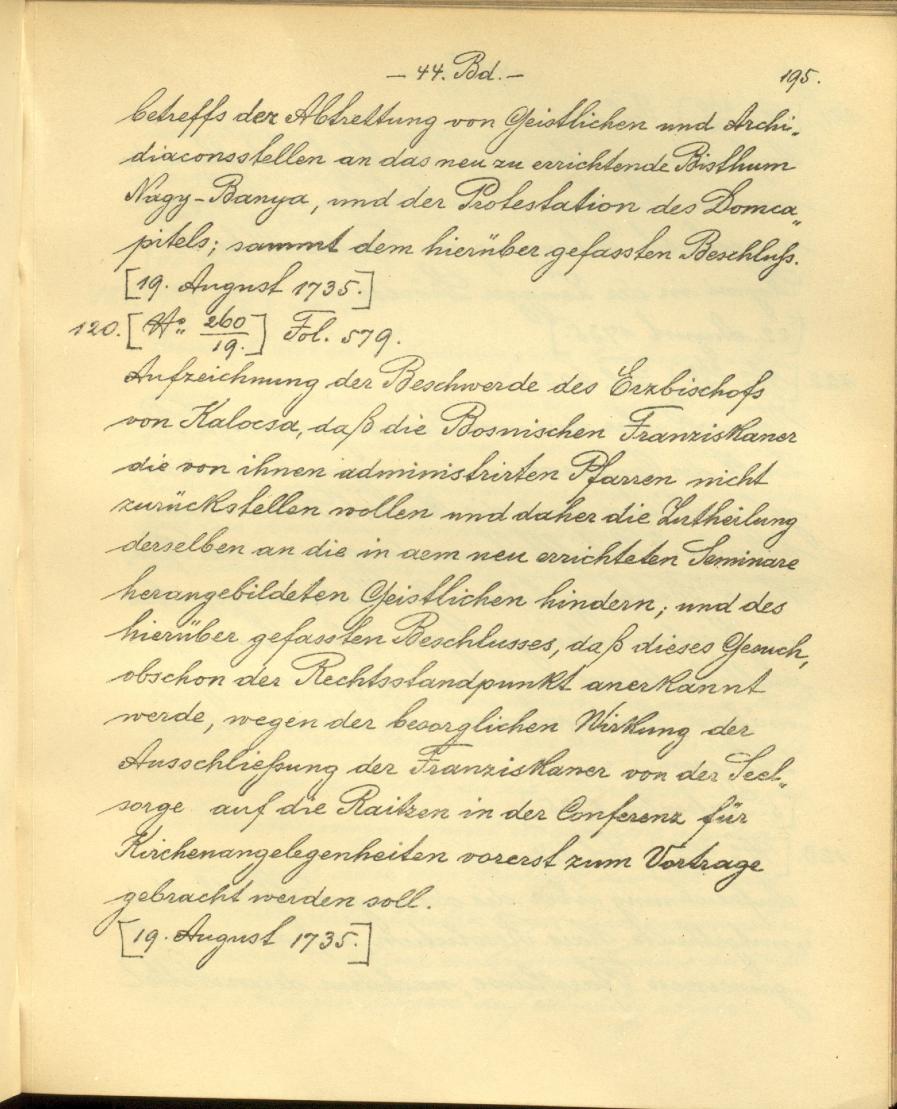 – 44. Bd. –
195.
betreffs der Abtrettung von Geistlichen und Archi„
diaconsstellen an das neu zu errichtende Bisthum
Nagy-Banya, und der Protestation des Domca„
pitels; sammt dem hierüber gefassten Beschluß.
[19. August 1735.]
120. [No 260/19.] Fol. 579.
Aufzeichnung der Beschwerde des Erzbischofs
von Kalocsa, daß die Bosnischen Franziskaner
die von ihnen administrirten Pfarren nicht
zurückstellen wollen und daher die Zutheilung
derselben an die in dem neu errichteten Seminare
herangebildeten Geistlichen hindern; und des
hierüber gefassten Beschlusses, daß dieses Gesuch,
obschon der Rechtsstandpunkt anerkannt
werde, wegen der besorglichen Wirkung der
Ausschließung der Franziskaner von der Seel„
sorge auf die Raitzen in der Conferenz für
Kirchenangelegenheiten vorerst zum Vortrage
gebracht werden soll.
[19. August 1735.]